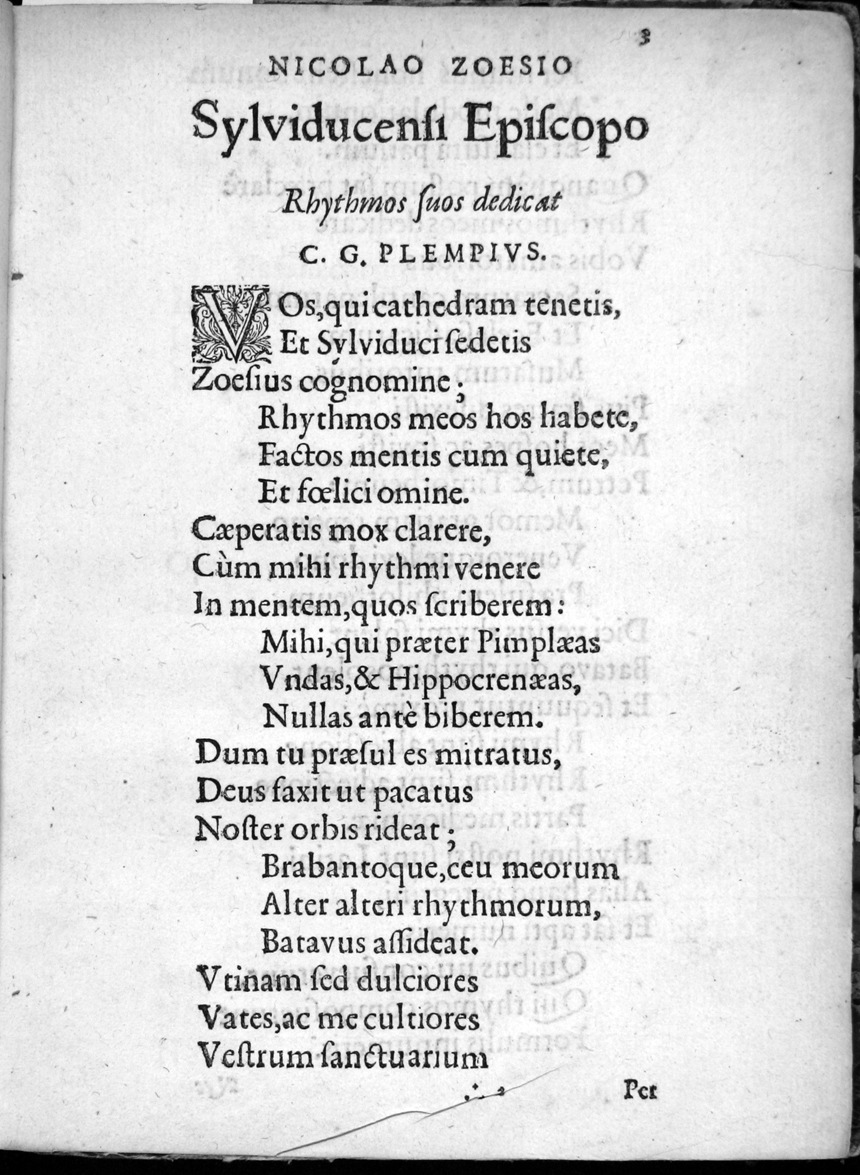 3
NICOLAO ZOESIO
Sylviducenſi Epiſcopo
Rhythmos ſuos dedicat
C. G. PLEMPIVS.
VOs,qui cathedram tenetis,
Et Sylviduci ſedetis
Zoeſius cognomine ;
Rhythmos meos hos habete,
Factos mentis cum quiete,
Et fœlici omine.
Cæperatis mox clarere,
Cùm mihi rhythmi venere
In mentem,quos ſcriberem:
Mihi,qui præter Pimplæas
Vndas,& Hippocrenæas,
Nullas antè biberem.
Dum tu præſul es mitratus,
Deus faxit ut pacatus
Noſter orbis rideat ;
Brabantoque,ceu meorum
Alter alteri rhythmorum,
Batavus aſſideat.
Vtinam ſed dulciores
Vates,ac me cultiores
Veſtrum ſanctuarium
Pet